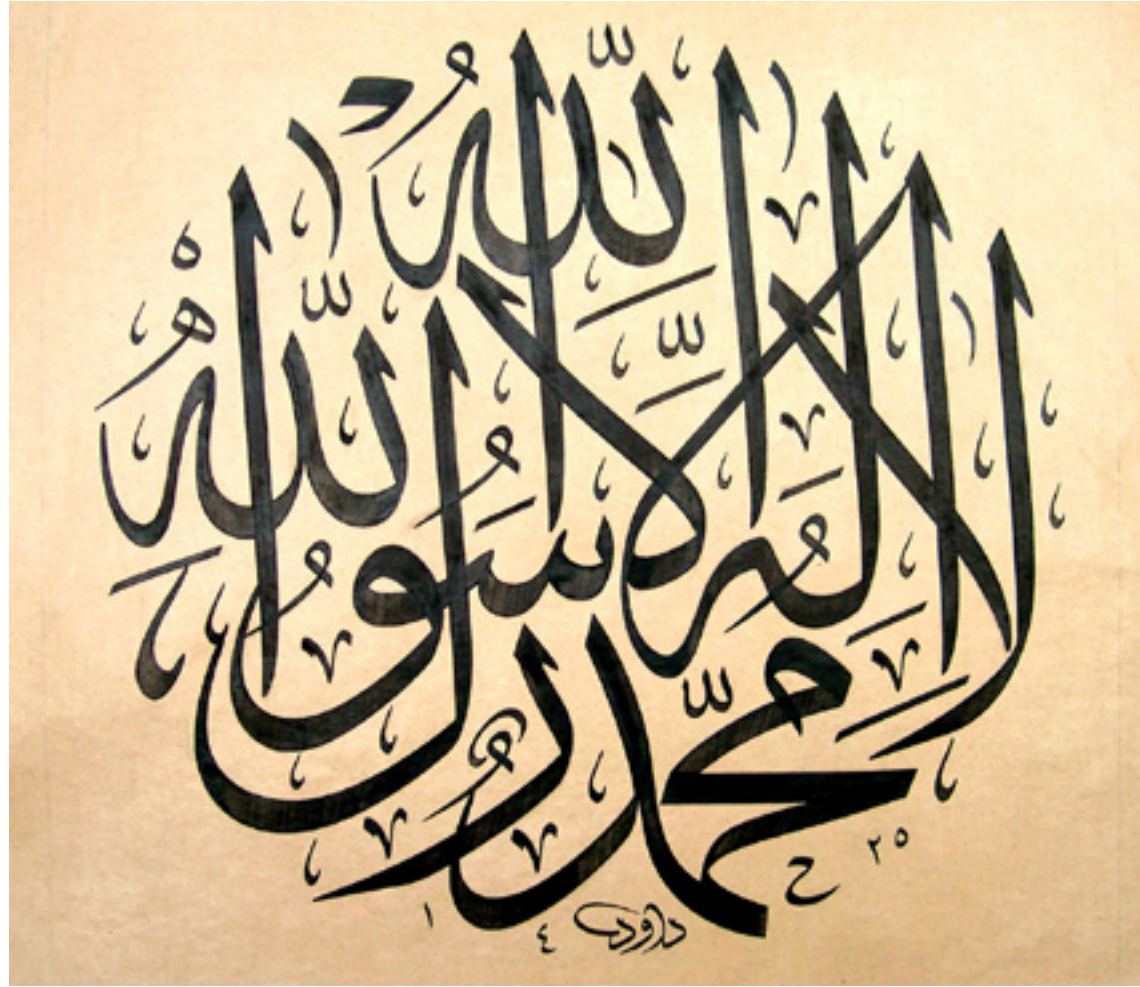 لا اله الا الله
محمد رسول الله
داود
١٤٢٥